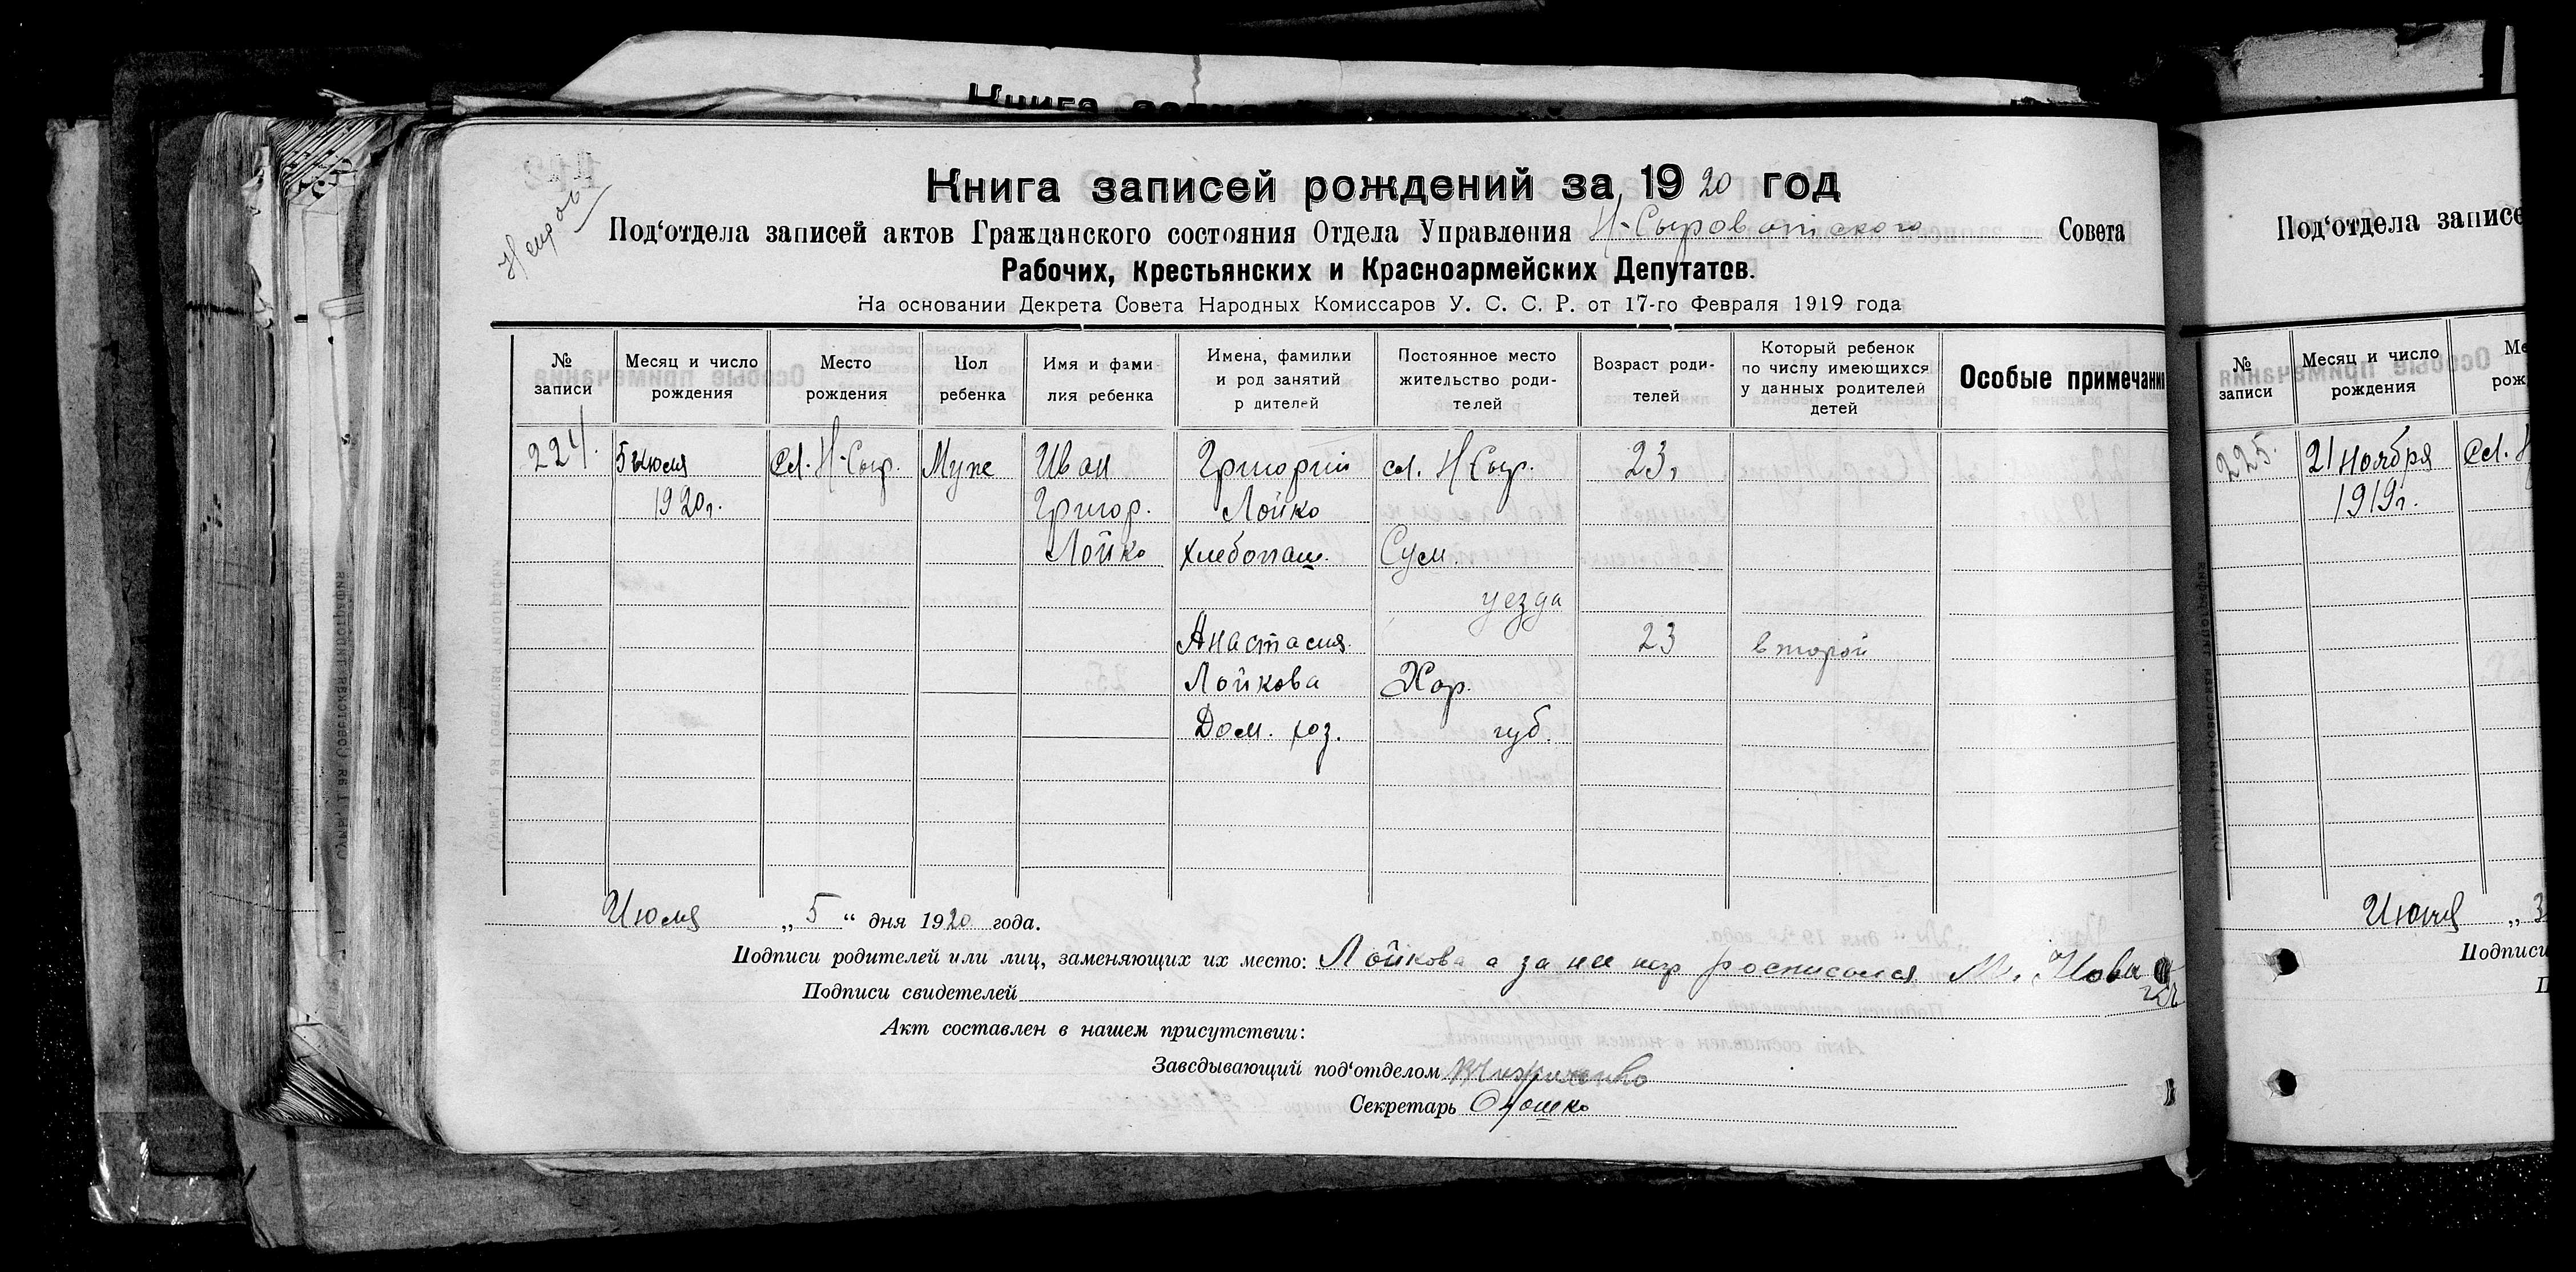 Книга записей рождений за 1920 год
Под‘отдела записей актов Гражданского состояния Отдела Управления Н-Сыроватского Совета
Рабочих, Крестьянских и Красноармейских Депутатов.
На основании Декрета Совета Народных Комиссаров У. С. С. Р. от 17-го Февраля 1919 года
№ записи
Месяц и число рождения
Место рождения
Пол ребенка
Имя и фами-
лия ребенка
Имена, фамилки
и род занятий
р дителей
Постоянное место
жительство роди-
телей
Возраст роди-
телей
Который ребенок
по числу имеющихся
у данных родителей
детей
Особые примечани
224. 5 июля сл. Н-Сыр. Муж Иван Григорий сл. Н-Сыр. 23,
1920г. Григор. Лойко
Лойко хлебопаш. Сум.
уезда
Анастасия 23 второй
Лойкова Хар.
Дом. хоз. губ.
Июля „ 5 “ дня 1920 года.
Подписи родителей или лиц, заменяющих их место: Лойкова а за нее росписался М.
Подписи свидетелей
Акт составлен в нашем присутствии:
Заведывающий под‘отделом
Секретарь
Под‘отдела записе
№ записи
Месяц и число
рождения
Ме
рож
225. 21 ноября сл. Н
1919г.
Июля „ 3
Подписи
П